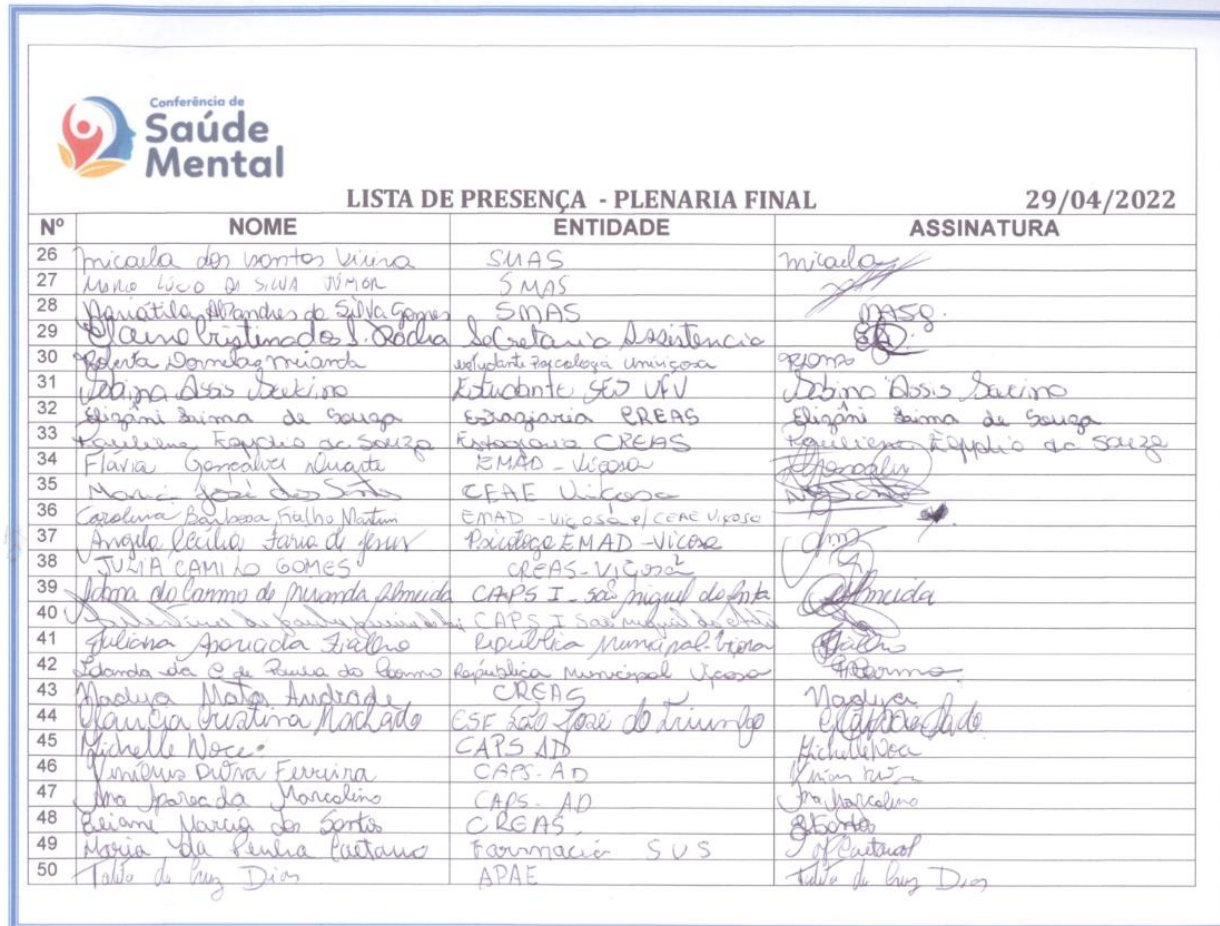 Conferência de
Saúde
Mental
LISTA DE PRESENÇA - PLENARIA FINAL 29/04/2022
Nº NOME ENTIDADE ASSINATURA
26 Micaela dos Santos Vieira SMAS Micaela
27 Mario Lúcio da Silva Júnior SMAS
28 da Silva Gomes SMAS
29 Cristina dos S. Rocha Secretaria Assistencia
30 Roberta Dornelas Miranda estudante psicologia univiçosa
31 Assis Estudante UFV Assis
32 Elizâni Saima de Souza Estagiaria CREAS Elizâni Saima de Souza
33 de Souza Estagiaria CREAS de Souza
34 Flávia Gonçalves Duarte EMAD - Viçosa
35 Maria José dos Santos CEAE Viçosa
36 Carolina Barbosa Fialho Martins EMAD - Viçosa e/ CEAE Viçosa
37 Angela Cecília Faria de Jesus Psicóloga EMAD - Viçosa
38 JULIA CAMILO GOMES CREAS - VIÇOSA
39 do Carmo de Miranda Almeida CAPS I - São Miguel do Anta Almeida
40 CAPS I São Miguel do Anta
41 Juliana Aparecida Fialho República Municipal - Viçosa Fialho
42 da C. de Paula do Carmo República Municipal Viçosa
43 Nadya Mota Andrade CREAS Nadya
44 Cristina Machado ESF São José do Triunfo
45 Michelle Noce CAPS AD Michelle Noce
46 Ferreira CAPS-AD
47 Ana Aparecida Marcolino CAPS-AD Ana Marcolino
48 Marcia dos Santos CREAS
49 Maria da Penha Caetano Farmacia SUS
50 Talita da Cruz Dias APAE Talita da Cruz Dias